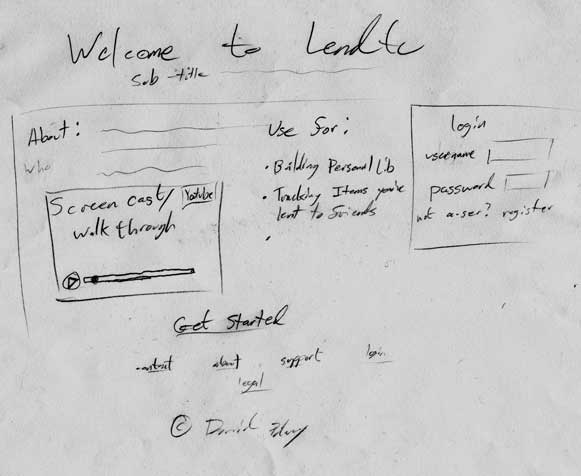 Welcome to Lendtc
Sub-title
About:
Who
Screen cast/
walk through
Youtube
Use for:
• Building Personal Lib
• Tracking Items you've
lent to friends
•
login
username
password
not a user? register
Get Started
contact about support login
legal
© David